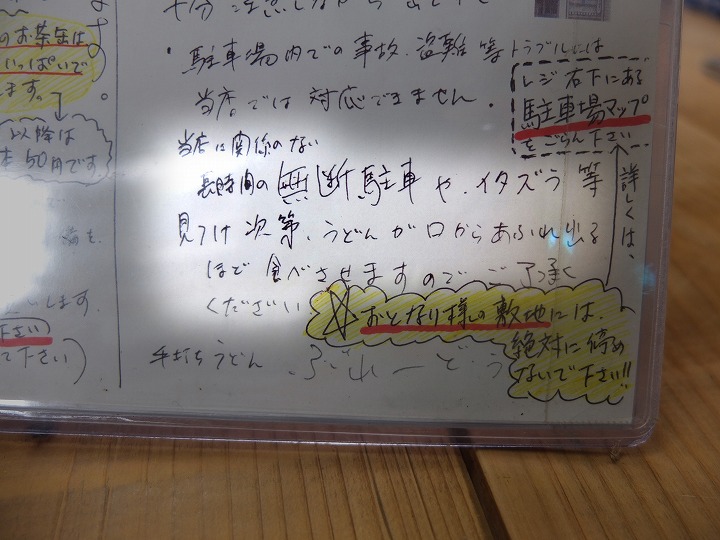 のお茶缶は
いっぱいで
します。
以降は
50円です
します。
下さい
て下さい)
・駐車場内での事故、盗難等トラブルには
当店では対応できません。
当店に関係のない
長時間の無断駐車や、イタズラ等
見つけ次第、うどんが口からあふれ出る
ほど食べさせますのでご了承
ください
手打ちうどん
レジ右下にある
駐車場マップ
をごらん下さい
詳しくは、
☆おとなり様の敷地には、
絶対に停め
ないで下さい!!